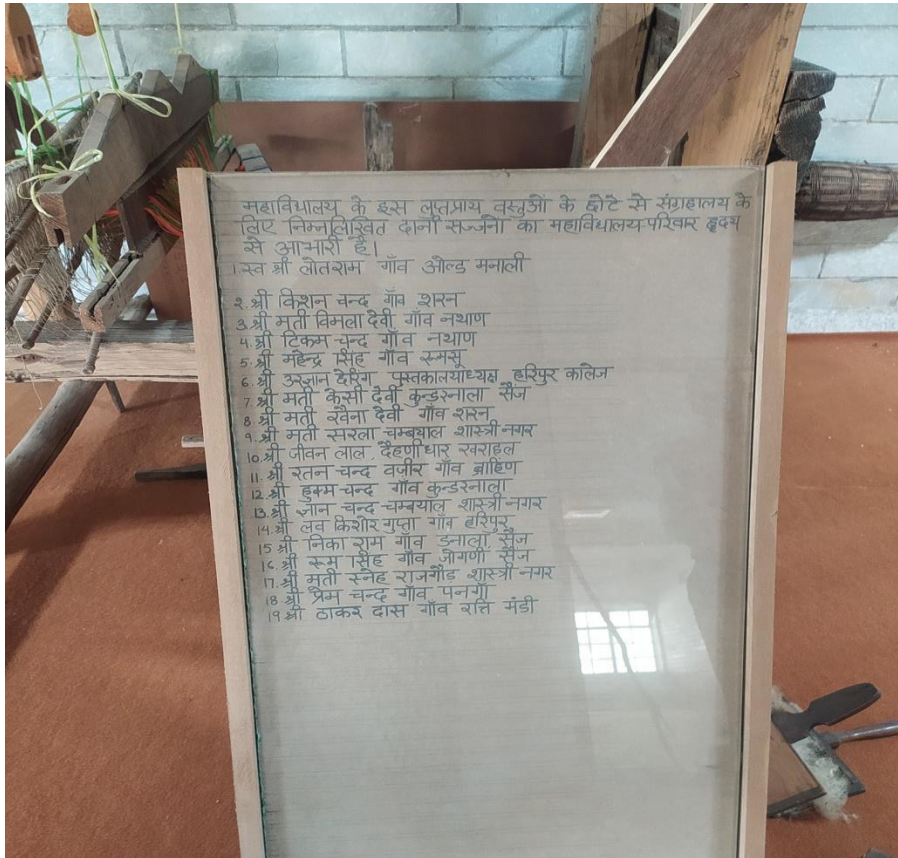 महाविधालय के इस लुप्तप्राय वस्तुओ के छोटे से संग्रहालय के
लिए निम्नलिखित दानी सज्जनो का महाविधालय परिवार हृदय
से आभारी है।
1. स्व श्री लोतराम गाँव ओल्ड मनाली
2. श्री किशन चन्द गाँव शरन
3. श्री मती विमला देवी गाँव नथाण
4. श्री टिकम चन्द गाँव नथाण
5. श्री महेन्द्र सिंह गाँव रूमसू
6. श्री उरज्ञान देरिंग पुस्तकालयाध्यक्ष हरिपुर कॉलेज
7. श्री मती केसी देवी कुन्डरनाला सैंज
8. श्री मती रवैना देवी गाँव शरन
9. श्री मती सरला चम्बयाल शास्त्री नगर
10. श्री जीवन लाल दैहणीधार खराहल
11. श्री रतन चन्द वज़ीर गाँव ब्राहिण
12. श्री हुक्म चन्द गाँव कुन्डरनाला
13. श्री ज्ञान चन्द चम्बयाल शास्त्री नगर
14. श्री लव किशोर गुप्ता गाँव हरिपुर
15 श्री निका राम गाँव डनाला सैंज
16. श्री रूम सिंह गाँव जोगणी सैंज
17. श्री मती स्नेह राजगौड़ शास्त्री नगर
18 श्री प्रेम चन्द गाँव पनगाँ
19 श्री ठाकर दास गाँव रत्ति मंडी